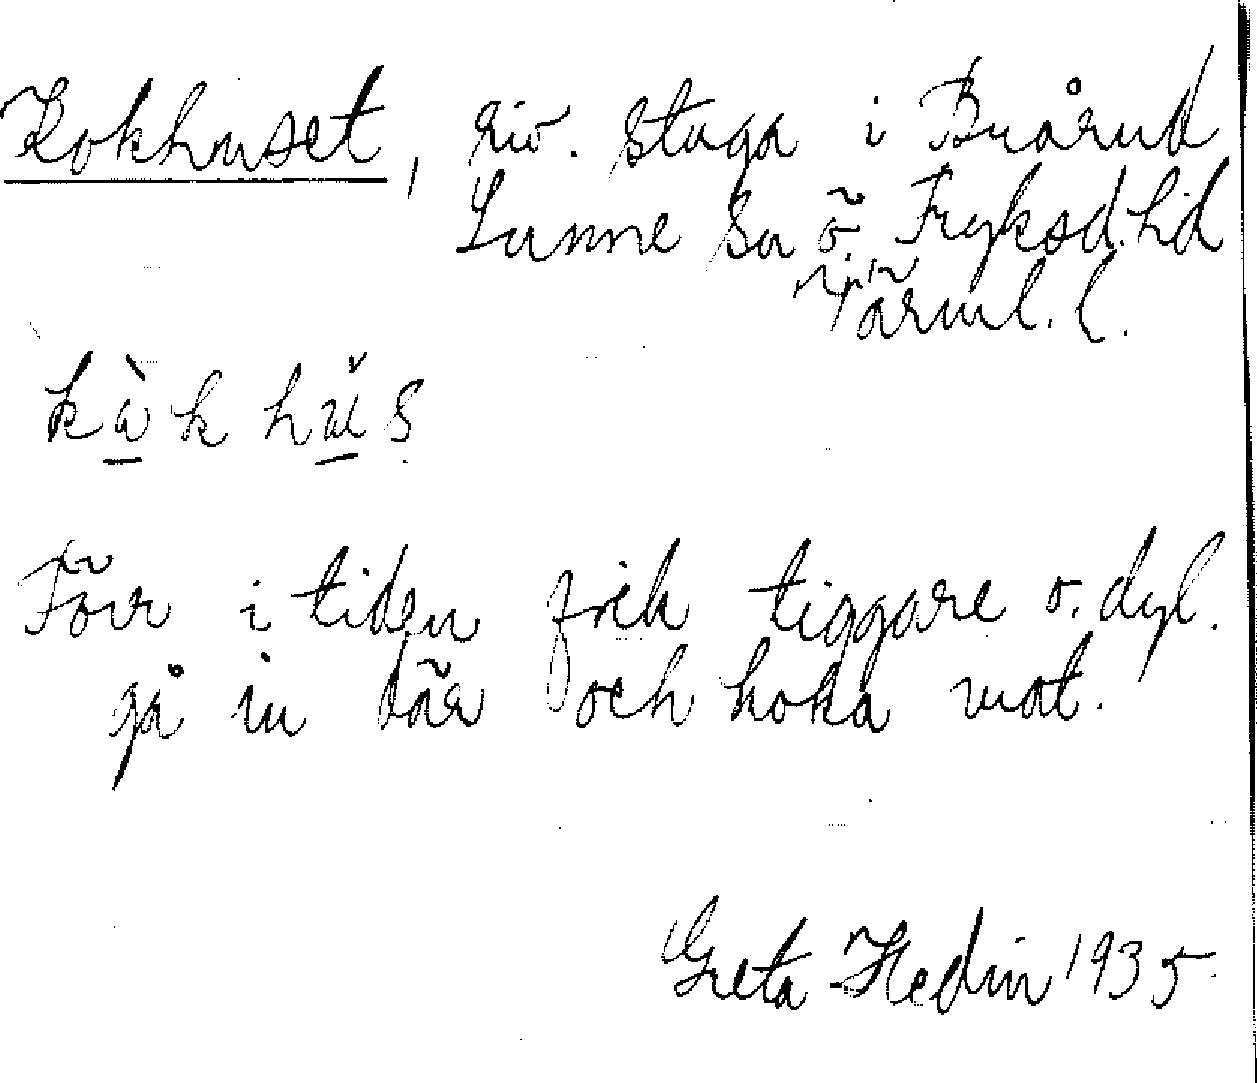 Kokhuset, riv. stuga i Bråarud
Sunne sn ö. Fryksd. hd
Värml. l.
kàk hŭs
Förr i tiden fick tiggare o. dyl.
gå in där och koka mat.
Greta Hedin 1935.